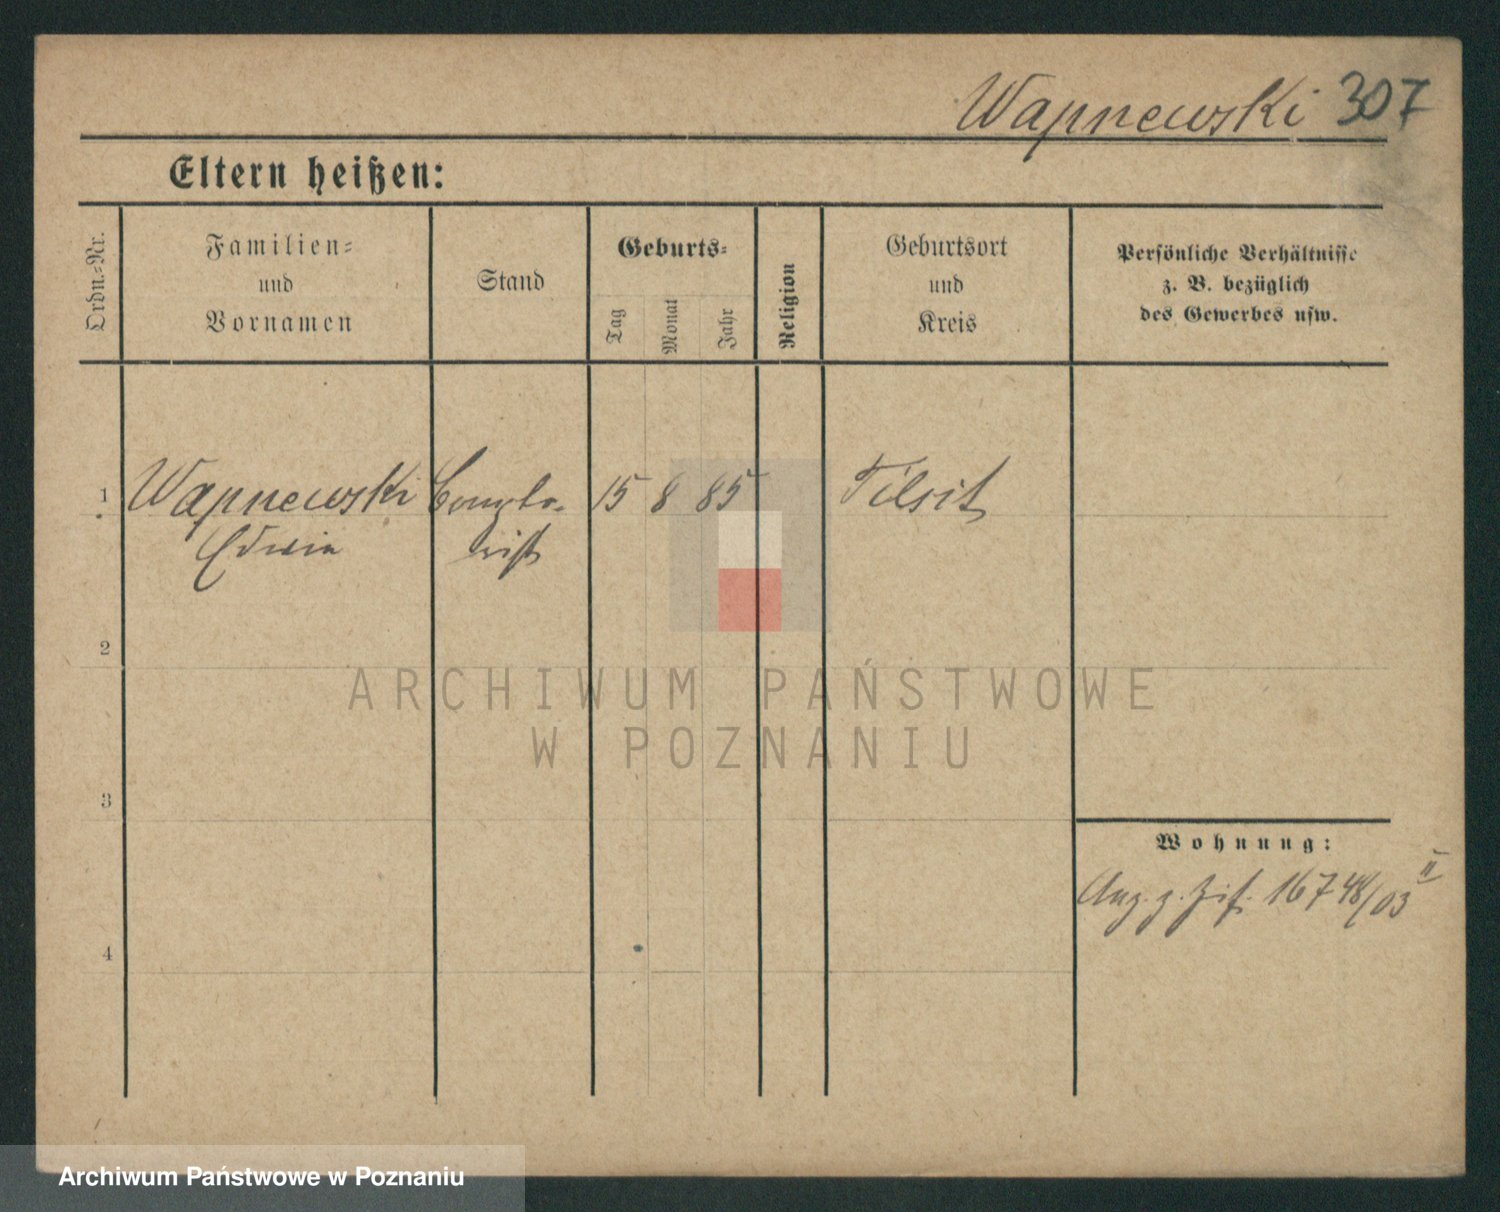 Wapnewski 307
Eltern heißen:
Ordn.-Nr.
Familien-
und
Vornamen
Stand
Geburts-
Tag
Monat
Jahr
Religion
Geburtsort
und
Kreis
Persönliche Verhältnisse
z. B. bezüglich
des Gewerbes usw.
1 Wapnewski Compto- 15 8 85 Tilsit
Edwin rist
2
ARCHIWUM PAŃSTWOWE
W POZNANIU
3
Wohnung:
II
Ang. z. Ziff. 16748/03
4
Archiwum Państwowe w Poznaniu